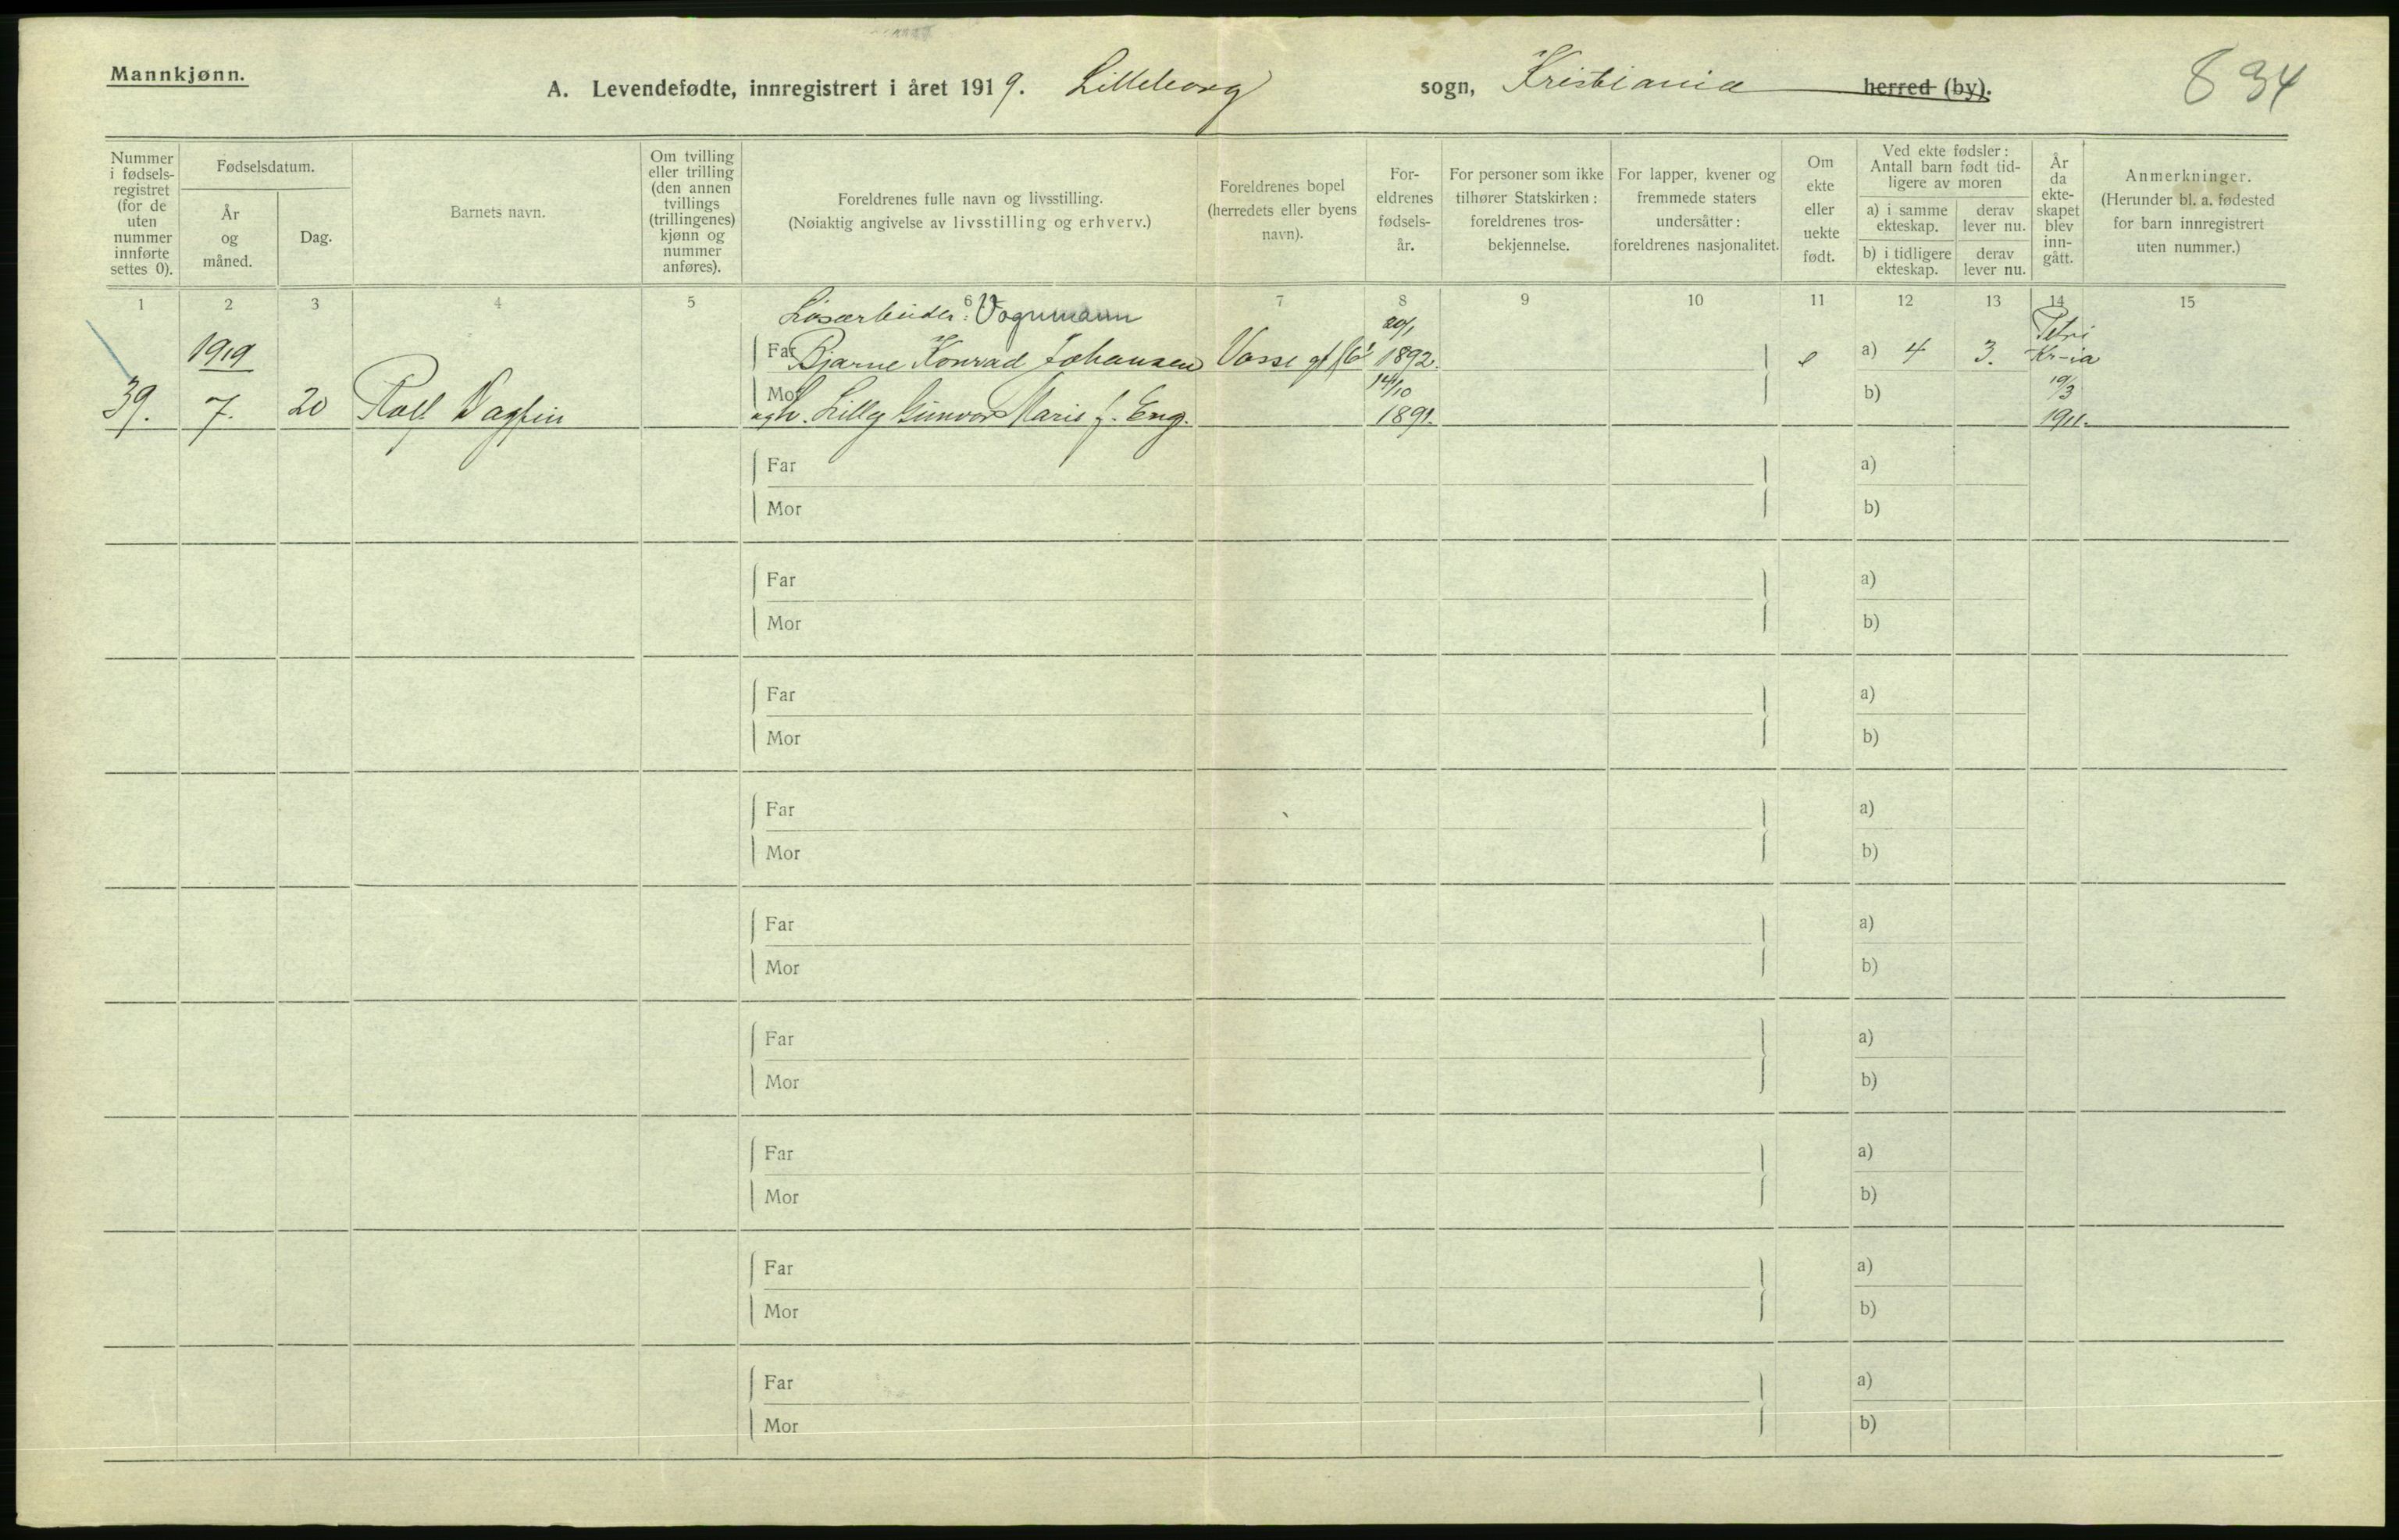 Mannkjønn.
A. Levendefødte, innregistrert i året 1919. Lilleborg sogn, Kristiania herred (by).
834
Nummer i fødsels-registret (for de uten nummer innførte settes 0).
Fødselsdatum.
År og måned.
Dag.
Barnets navn.
Om tvilling eller trilling (den annen tvillings (trillingenes) kjønn og nummer anføres).
Foreldrenes fulle navn og livsstilling.
(Nøiaktig angivelse av livsstilling og erhverv.)
Foreldrenes bopel (herredets eller byens navn).
For-eldrenes fødsels-år.
For personer som ikke tilhører Statskirken: foreldrenes tros-bekjennelse.
For lapper, kvener og fremmede staters undersåtter: foreldrenes nasjonalitet.
Om ekte eller uekte født.
Ved ekte fødsler: Antall barn født tid-ligere av moren
a) i samme ekteskap.
derav lever nu.
b) i tidligere ekteskap.
derav lever nu.
År da ekte-skapet blev inn-gått.
Anmerkninger.
(Herunder bl. a. fødested for barn innregistrert uten nummer.)
1 2 3 4 5 6 7 8 9 10 11 12 13 14 15
Løsarbeider: Vognmann
20/1
Petri
1919 Far Bjarne Konrad Johansen Vosse gt 1892. e a) 4 3. Kr-ia
14/10 19/3
39. 7. 20 Rolf Dagfin Mor og h. Lilly Gunvor Marie f. Eng. 1891. b) 1911.
Far a)
Mor b)
Far a)
Mor b)
Far a)
Mor b)
Far a)
Mor b)
Far a)
Mor b)
Far a)
Mor b)
Far a)
Mor b)
Far a)
Mor b)
Far a)
Mor b)